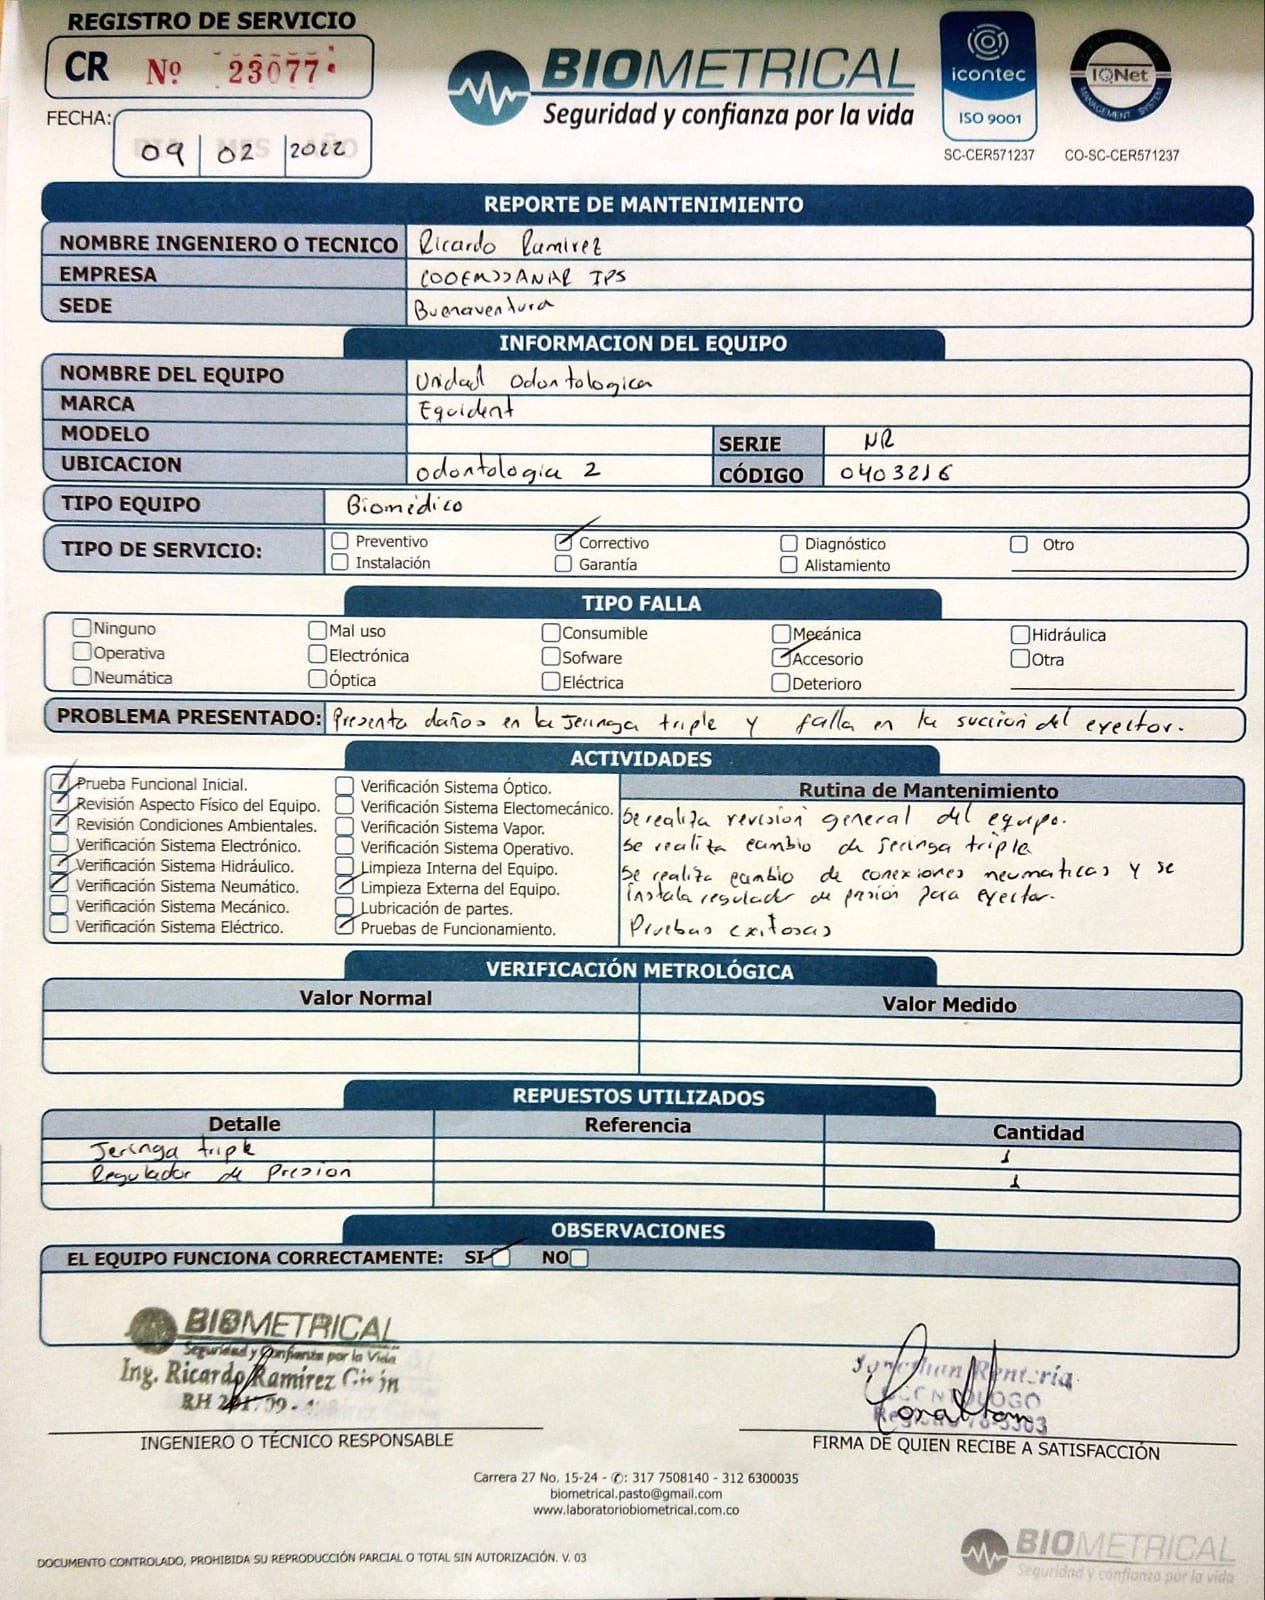 REGISTRO DE SERVICIO
CR Nº 23077
FECHA: 09 02 2022
BIOMETRICAL
Seguridad y confianza por la vida
icontec
ISO 9001
SC-CER571237
IQNet
MANAGEMENT SYSTEM
CO-SC-CER571237
REPORTE DE MANTENIMIENTO
NOMBRE INGENIERO O TECNICO Ricardo Ramirez
EMPRESA COOEMSSANAR IPS
SEDE Buenaventura
INFORMACION DEL EQUIPO
NOMBRE DEL EQUIPO Unidad Odontologica
MARCA Equident
MODELO SERIE NR
UBICACION odontologia 2 CÓDIGO 0403216
TIPO EQUIPO Biomédico
TIPO DE SERVICIO: Preventivo Correctivo Diagnóstico Otro
Instalación Garantía Alistamiento
TIPO FALLA
Ninguno Mal uso Consumible Mecánica Hidráulica
Operativa Electrónica Sofware Accesorio Otra
Neumática Óptica Eléctrica Deterioro
PROBLEMA PRESENTADO: Presenta daños en la Jeringa triple y falla en la succion del eyector.
ACTIVIDADES
Prueba Funcional Inicial.
Revisión Aspecto Físico del Equipo.
Revisión Condiciones Ambientales.
Verificación Sistema Electrónico.
Verificación Sistema Hidráulico.
Verificación Sistema Neumático.
Verificación Sistema Mecánico.
Verificación Sistema Eléctrico.
Verificación Sistema Óptico.
Verificación Sistema Electomecánico.
Verificación Sistema Vapor.
Verificación Sistema Operativo.
Limpieza Interna del Equipo.
Limpieza Externa del Equipo.
Lubricación de partes.
Pruebas de Funcionamiento.
Rutina de Mantenimiento
Se realiza revision general del equipo.
se realiza cambio de jeringa triple
se realiza cambio de conexiones neumaticas y se
instala regulador de presión para eyector.
Pruebas exitosas
VERIFICACIÓN METROLÓGICA
Valor Normal Valor Medido
REPUESTOS UTILIZADOS
Detalle Referencia Cantidad
Jeringa triple 1
Regulador de Presion 1
OBSERVACIONES
EL EQUIPO FUNCIONA CORRECTAMENTE: SI NO
BIOMETRICAL
Seguridad y Confianza por la Vida
Ing. Ricardo Ramírez
INGENIERO O TÉCNICO RESPONSABLE
Jonathan Rentería
ODONTOLOGO
FIRMA DE QUIEN RECIBE A SATISFACCIÓN
Carrera 27 No. 15-24 - ✆: 317 7508140 - 312 6300035
biometrical.pasto@gmail.com
www.laboratoriobiometrical.com.co
DOCUMENTO CONTROLADO, PROHIBIDA SU REPRODUCCIÓN PARCIAL O TOTAL SIN AUTORIZACIÓN. V. 03
BIOMETRICAL
Seguridad y confianza por la vida